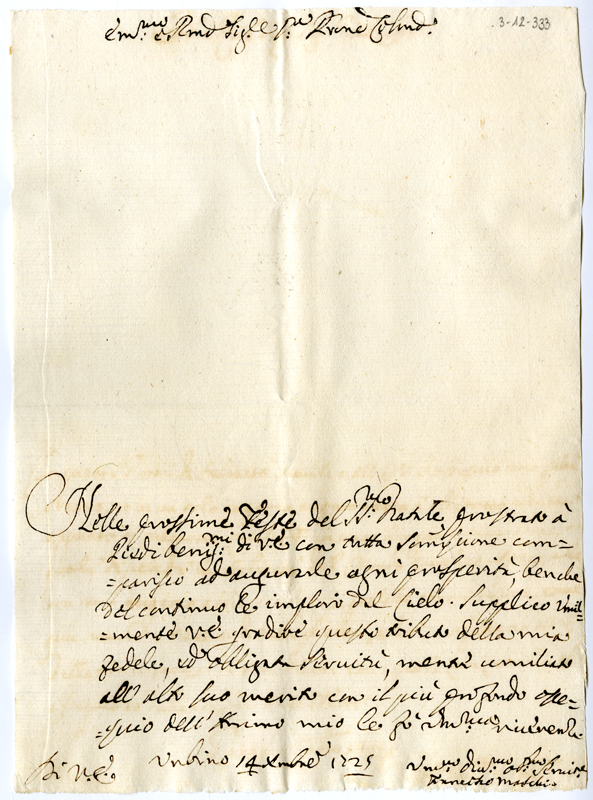 3-12-333
Em.mo e Rmd Sig.e
Nelle prossime Feste del SS.mo Natale prostrato à
Piedi benig.mi di V.E. con tutta somissione com=
=parisco ad augurarle ogni prosperità, benche
del continuo le implori del Cielo. Supplico Umil=
=mente V.E. gradire questo tributo della mia
fedele, ed obligata servitù, mentre umiliato
all'alto suo merito con il più profondo osse=
=quio dell'Animo mio le fò Um.ma riverenza
Di V.E.
Urbino 14 Xmbre 1725
Um.mo Div.mo Ob.mo